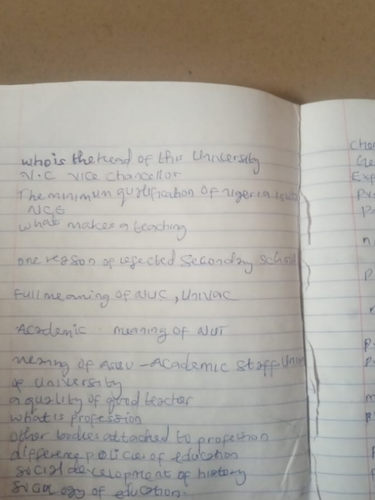 who is the head of this University
V.C vice chancellor
The minimum qualification of nigeria
NCE
what makes a teaching
one reason of rejected Secondary School
Full meaning of NUC, UNIVAC
Academic meaning of NUT
meaning of ASUU - Academic Staff Union
of University
a quality of good teacher
what is profession
other bodies attached to profession
difference policies of education
social development of history
of education.